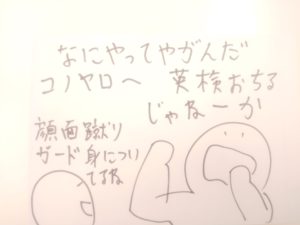 なにやってやがんだ
コノヤロヘ 英検おちる
じゃねーか
顔面蹴り
ガード身につい
てるね